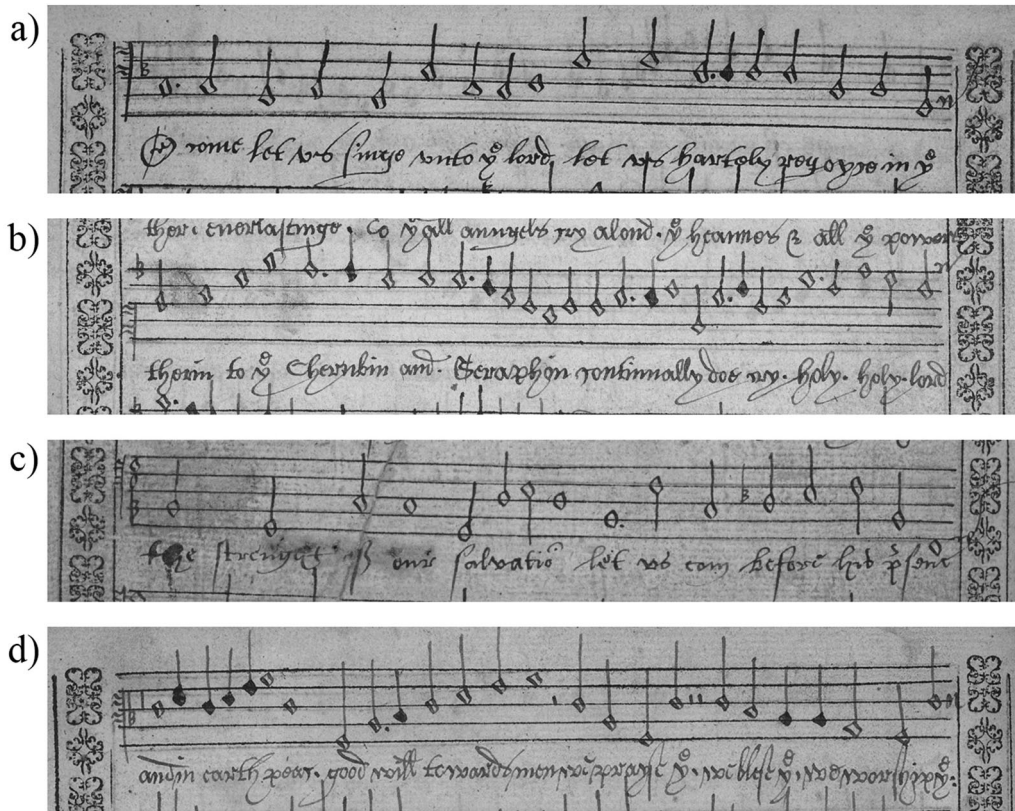 a)
O come let vs singe vnto yͤ lord let vs hartely reyoyce in yͤ
b)
ther everlastinge. To yͤ all anngels cry aloud. yͤ heavnes & all yͤ powers
therin to yͤ Cherubin and. Seraphin continually doe cry. holy. holy. lord
c)
the strenght our salvatio let vs com before his psenc
d)
and in earth peac. good will towards men we prayse yͤ. we blese yͤ. we worship yͤ.